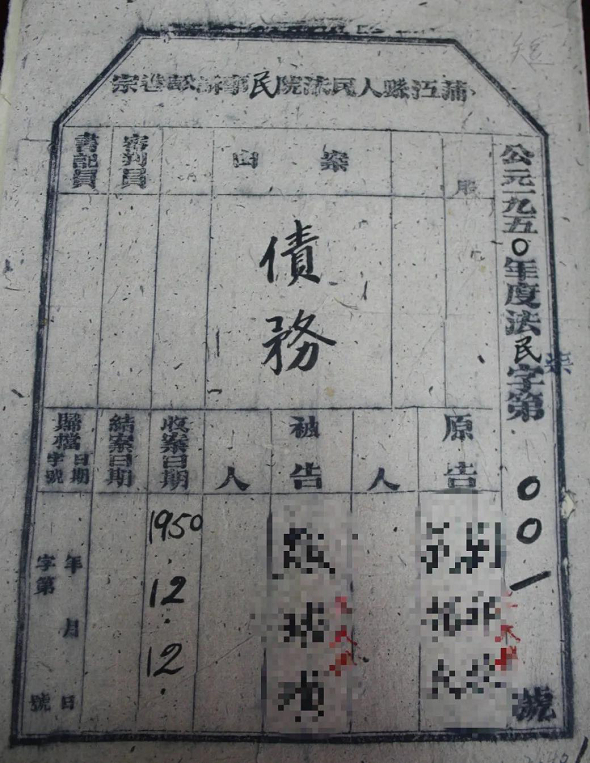 蒲江縣人民法院民事訴訟卷宗
公元一九五〇年度法民字第001號
案由
債務
審判員
書記員
原告
人
被告
人
收案日期
1950.12.12.
結案日期
歸檔日期字號
年月日
字第號